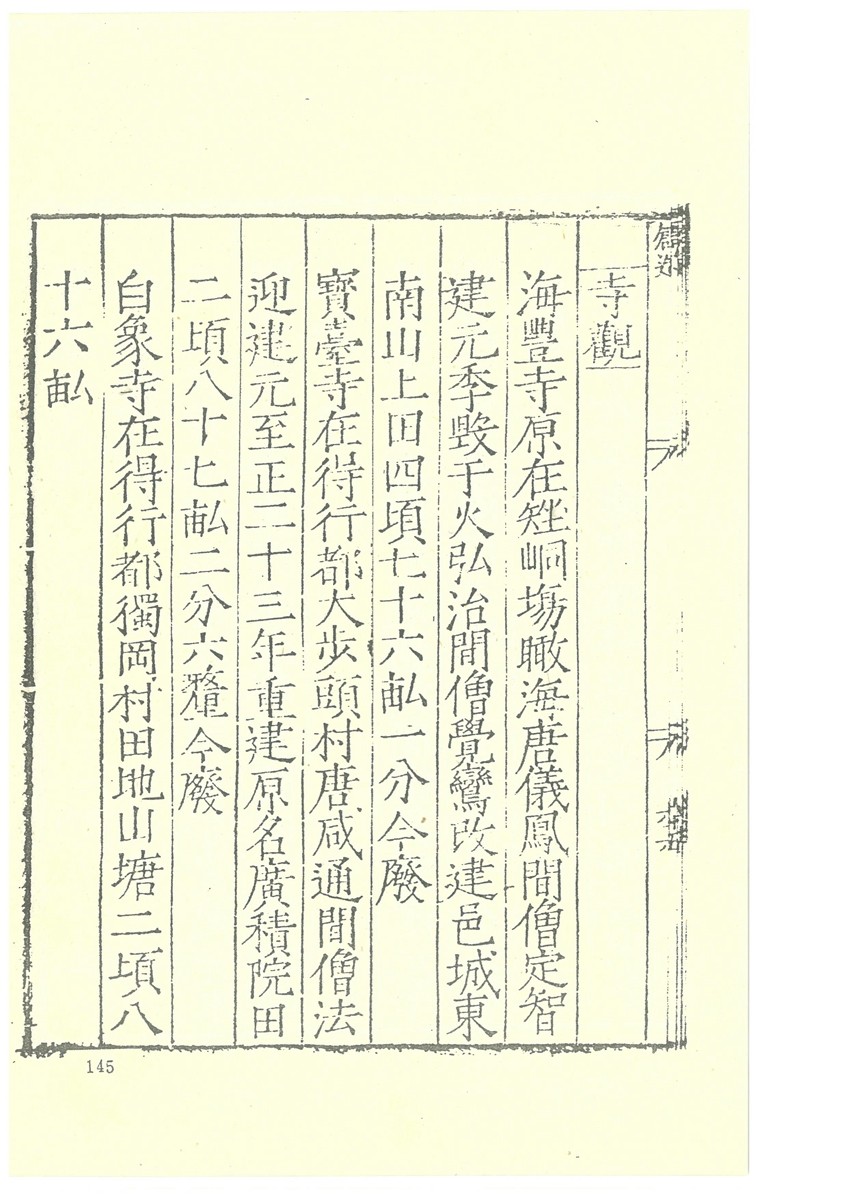 寺觀
海豐寺原在矬峒塲瞰海唐儀鳳間僧定智
建元季毀于火弘治間僧覺鸞改建邑城東
南山上田四頃七十六畒一分今廢
寶臺寺在得行都大步頭村唐咸通間僧法
迎建元至正二十三年重建原名廣積院田
二頃八十七畒二分六釐今廢
白象寺在得行都獨岡村田地山塘二頃八
十六畒
145